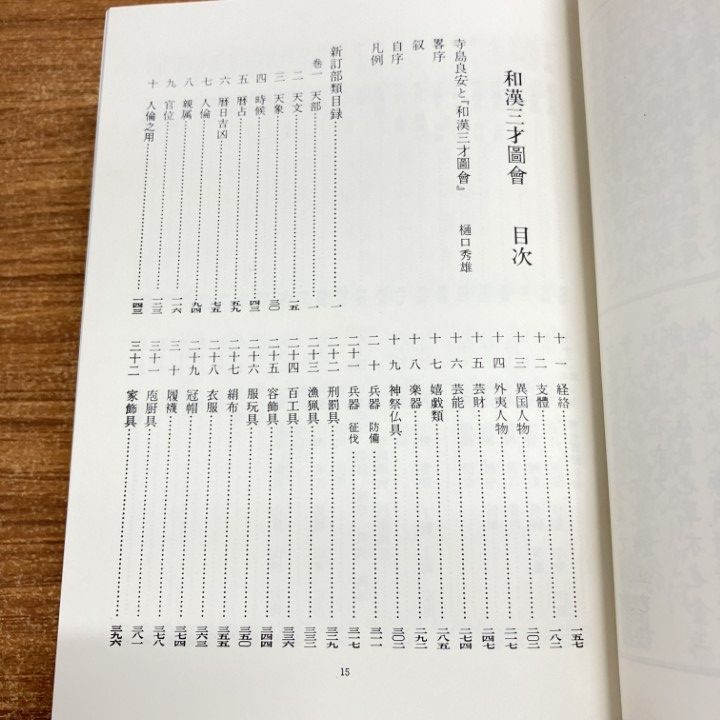 和漢三才圖會　目次
寺島良安と『和漢三才圖會』　樋口秀雄
畧序
叙
自序
凡例
新訂部類目録……一
巻一　天部……一
二　天文……一五
三　天象……三〇
四　時候……四三
五　暦占……五九
六　暦日吉凶……七五
七　人倫……九四
八　親属……一一六
九　官位……一二三
十　人倫之用……一四三
十一　経絡……一五七
十二　支體……一八二
十三　異国人物……二〇二
十四　外夷人物……二一七
十五　芸財……二四七
十六　芸能……二七四
十七　嬉戯類……二八五
十八　楽器……二九二
十九　神祭仏具……三〇二
二十　兵器　防備……三一一
二十一　兵器　征伐……三一七
二十二　刑罰具……三二九
二十三　漁猟具……三三二
二十四　百工具……三三六
二十五　容飾具……三四四
二十六　服玩具……三五〇
二十七　絹布……三五五
二十八　衣服……三六三
二十九　冠帽……三七四
三十　履襪……三七八
三十一　庖厨具……三八一
三十二　家飾具……三九六
15